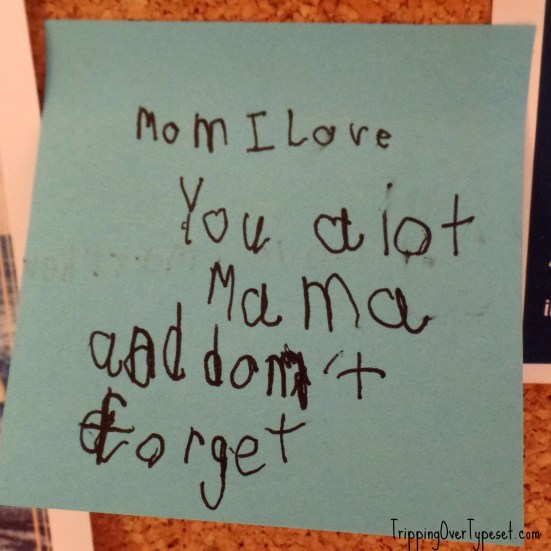 Mom I Love
You a lot
Mama
and don't
forget
TrippingOverTypeset.com